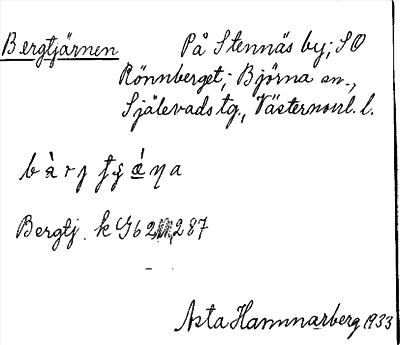 Bergtjärnen På Stennäs by; SO
Rönnberget; Björna sn.,
Själevads tg., Västernorrl. l.
Bergtj. k G 62 287
Asta Hammarberg 1933